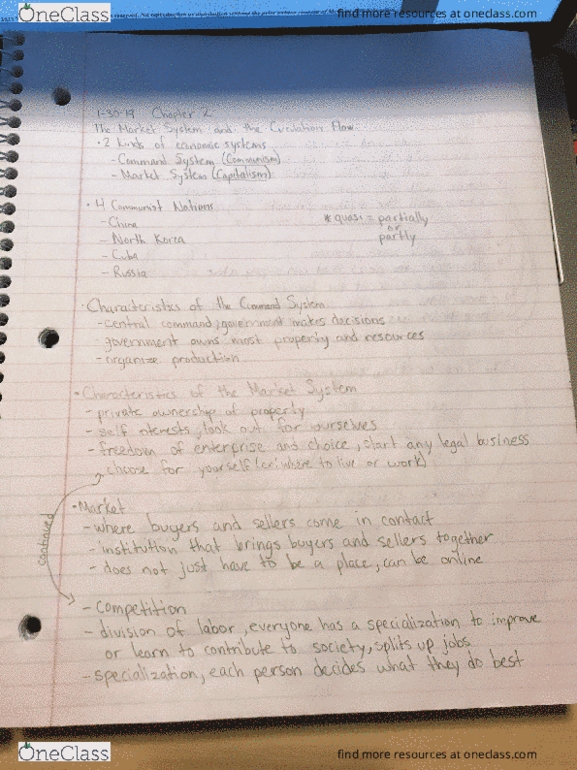 OneClass
find more resources at oneclass.com
1-30-19 Chapter 2
The Market System and the Circulation Flow
• 2 kinds of economic systems
- Command System (Communism)
- Market System (Capitalism)
• 4 Communist Nations
- China
* quasi = partially
or
partly
- North Korea
- Cuba
- Russia
• Characteristics of the Command System
- central command, government makes decisions
- government owns most property and resources
- organize production
• Characteristics of the Market System
- private ownership of property
- self interests, look out for ourselves
- freedom of enterprise and choice, start any legal business
choose for yourself (or where to live or work)
continued
• Market
- where buyers and sellers come in contact
- institution that brings buyers and sellers together
- does not just have to be a place, can be online
- Competition
- division of labor, everyone has a specialization to improve
or learn to contribute to society, splits up jobs
- specialization, each person decides what they do best
OneClass
find more resources at oneclass.com